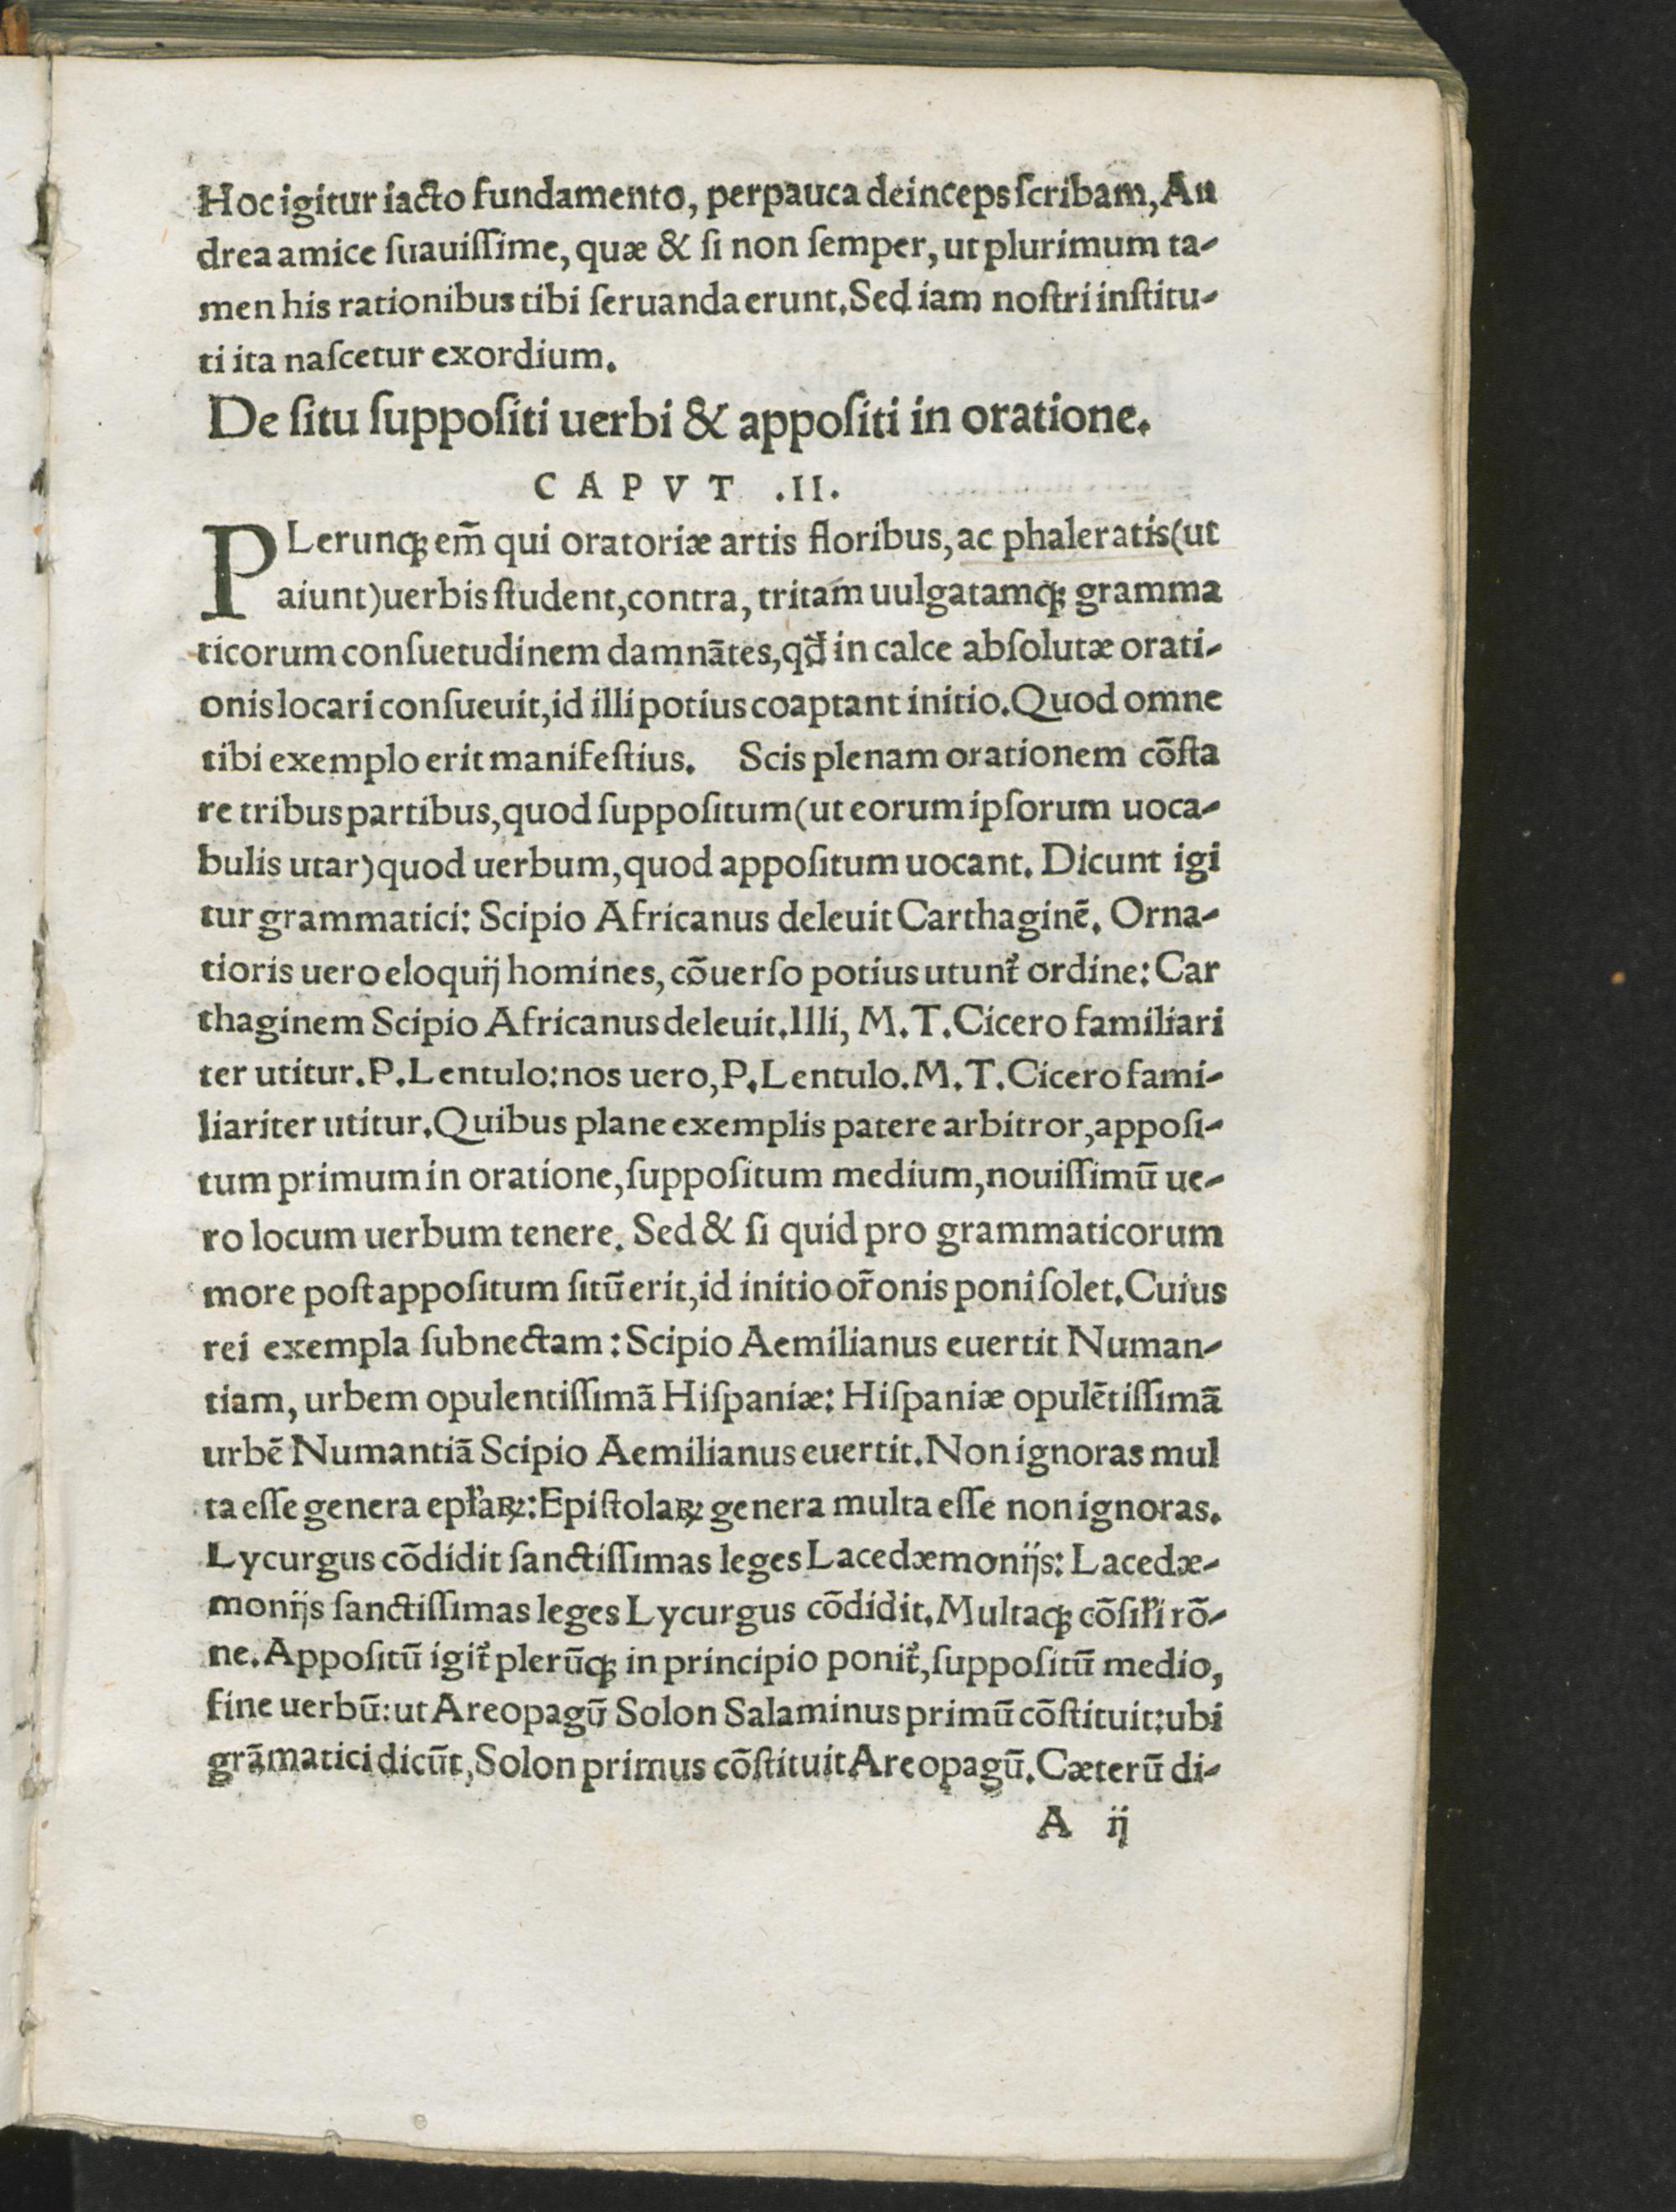 Hoc igitur iacto fundamento, perpauca deinceps ſcribam, An
drea amice ſuauiſſime, quæ & ſi non ſemper, ut plurimum ta-
men his rationibus tibi ſeruanda erunt. Sed iam noſtri inſtitu-
ti ita naſcetur exordium.
De ſitu ſuppoſiti uerbi & appoſiti in oratione.
CAPVT .II.
PLerunqꝫ em̃ qui oratoriæ artis floribus, ac phaleratis (ut
aiunt) uerbis ſtudent, contra, tritam uulgatamqꝫ gramma
ticorum conſuetudinem damnãtes, qđ in calce abſolutæ orati-
onis locari conſueuit, id illi potius coaptant initio. Quod omne
tibi exemplo erit manifeſtius. Scis plenam orationem cõſta
re tribus partibus, quod ſuppoſitum (ut eorum ipſorum uoca-
bulis utar) quod uerbum, quod appoſitum uocant. Dicunt igi
tur grammatici: Scipio Africanus deleuit Carthaginẽ. Orna-
tioris uero eloquij homines, cõuerſo potius utunt᷑ ordine: Car
thaginem Scipio Africanus deleuit. Illi, M. T. Cicero familiari
ter utitur. P. Lentulo: nos uero, P. Lentulo. M. T. Cicero fami-
liariter utitur. Quibus plane exemplis patere arbitror, appoſi-
tum primum in oratione, ſuppoſitum medium, nouiſſimũ ue-
ro locum uerbum tenere. Sed & ſi quid pro grammaticorum
more poſt appoſitum ſitũ erit, id initio or̃onis poni ſolet. Cuius
rei exempla ſubnectam: Scipio Aemilianus euertit Numan-
tiam, urbem opulentiſſimã Hiſpaniæ: Hiſpaniæ opulẽtiſſimã
urbẽ Numantiã Scipio Aemilianus euertit. Non ignoras mul
ta eſſe genera epľaꝝ: Epiſtolaꝝ genera multa eſſe non ignoras.
Lycurgus cõdidit ſanctiſſimas leges Lacedæmonijs: Lacedæ-
monijs ſanctiſſimas leges Lycurgus cõdidit. Multaqꝫ cõſiľi rõ-
ne. Appoſitũ igit᷑ plerũqꝫ in principio ponit᷑, ſuppoſitũ medio,
fine uerbũ: ut Areopagũ Solon Salaminus primũ cõſtituit: ubi
grãmatici dicũt, Solon primus cõſtituit Areopagũ. Cæterũ di-
A ij